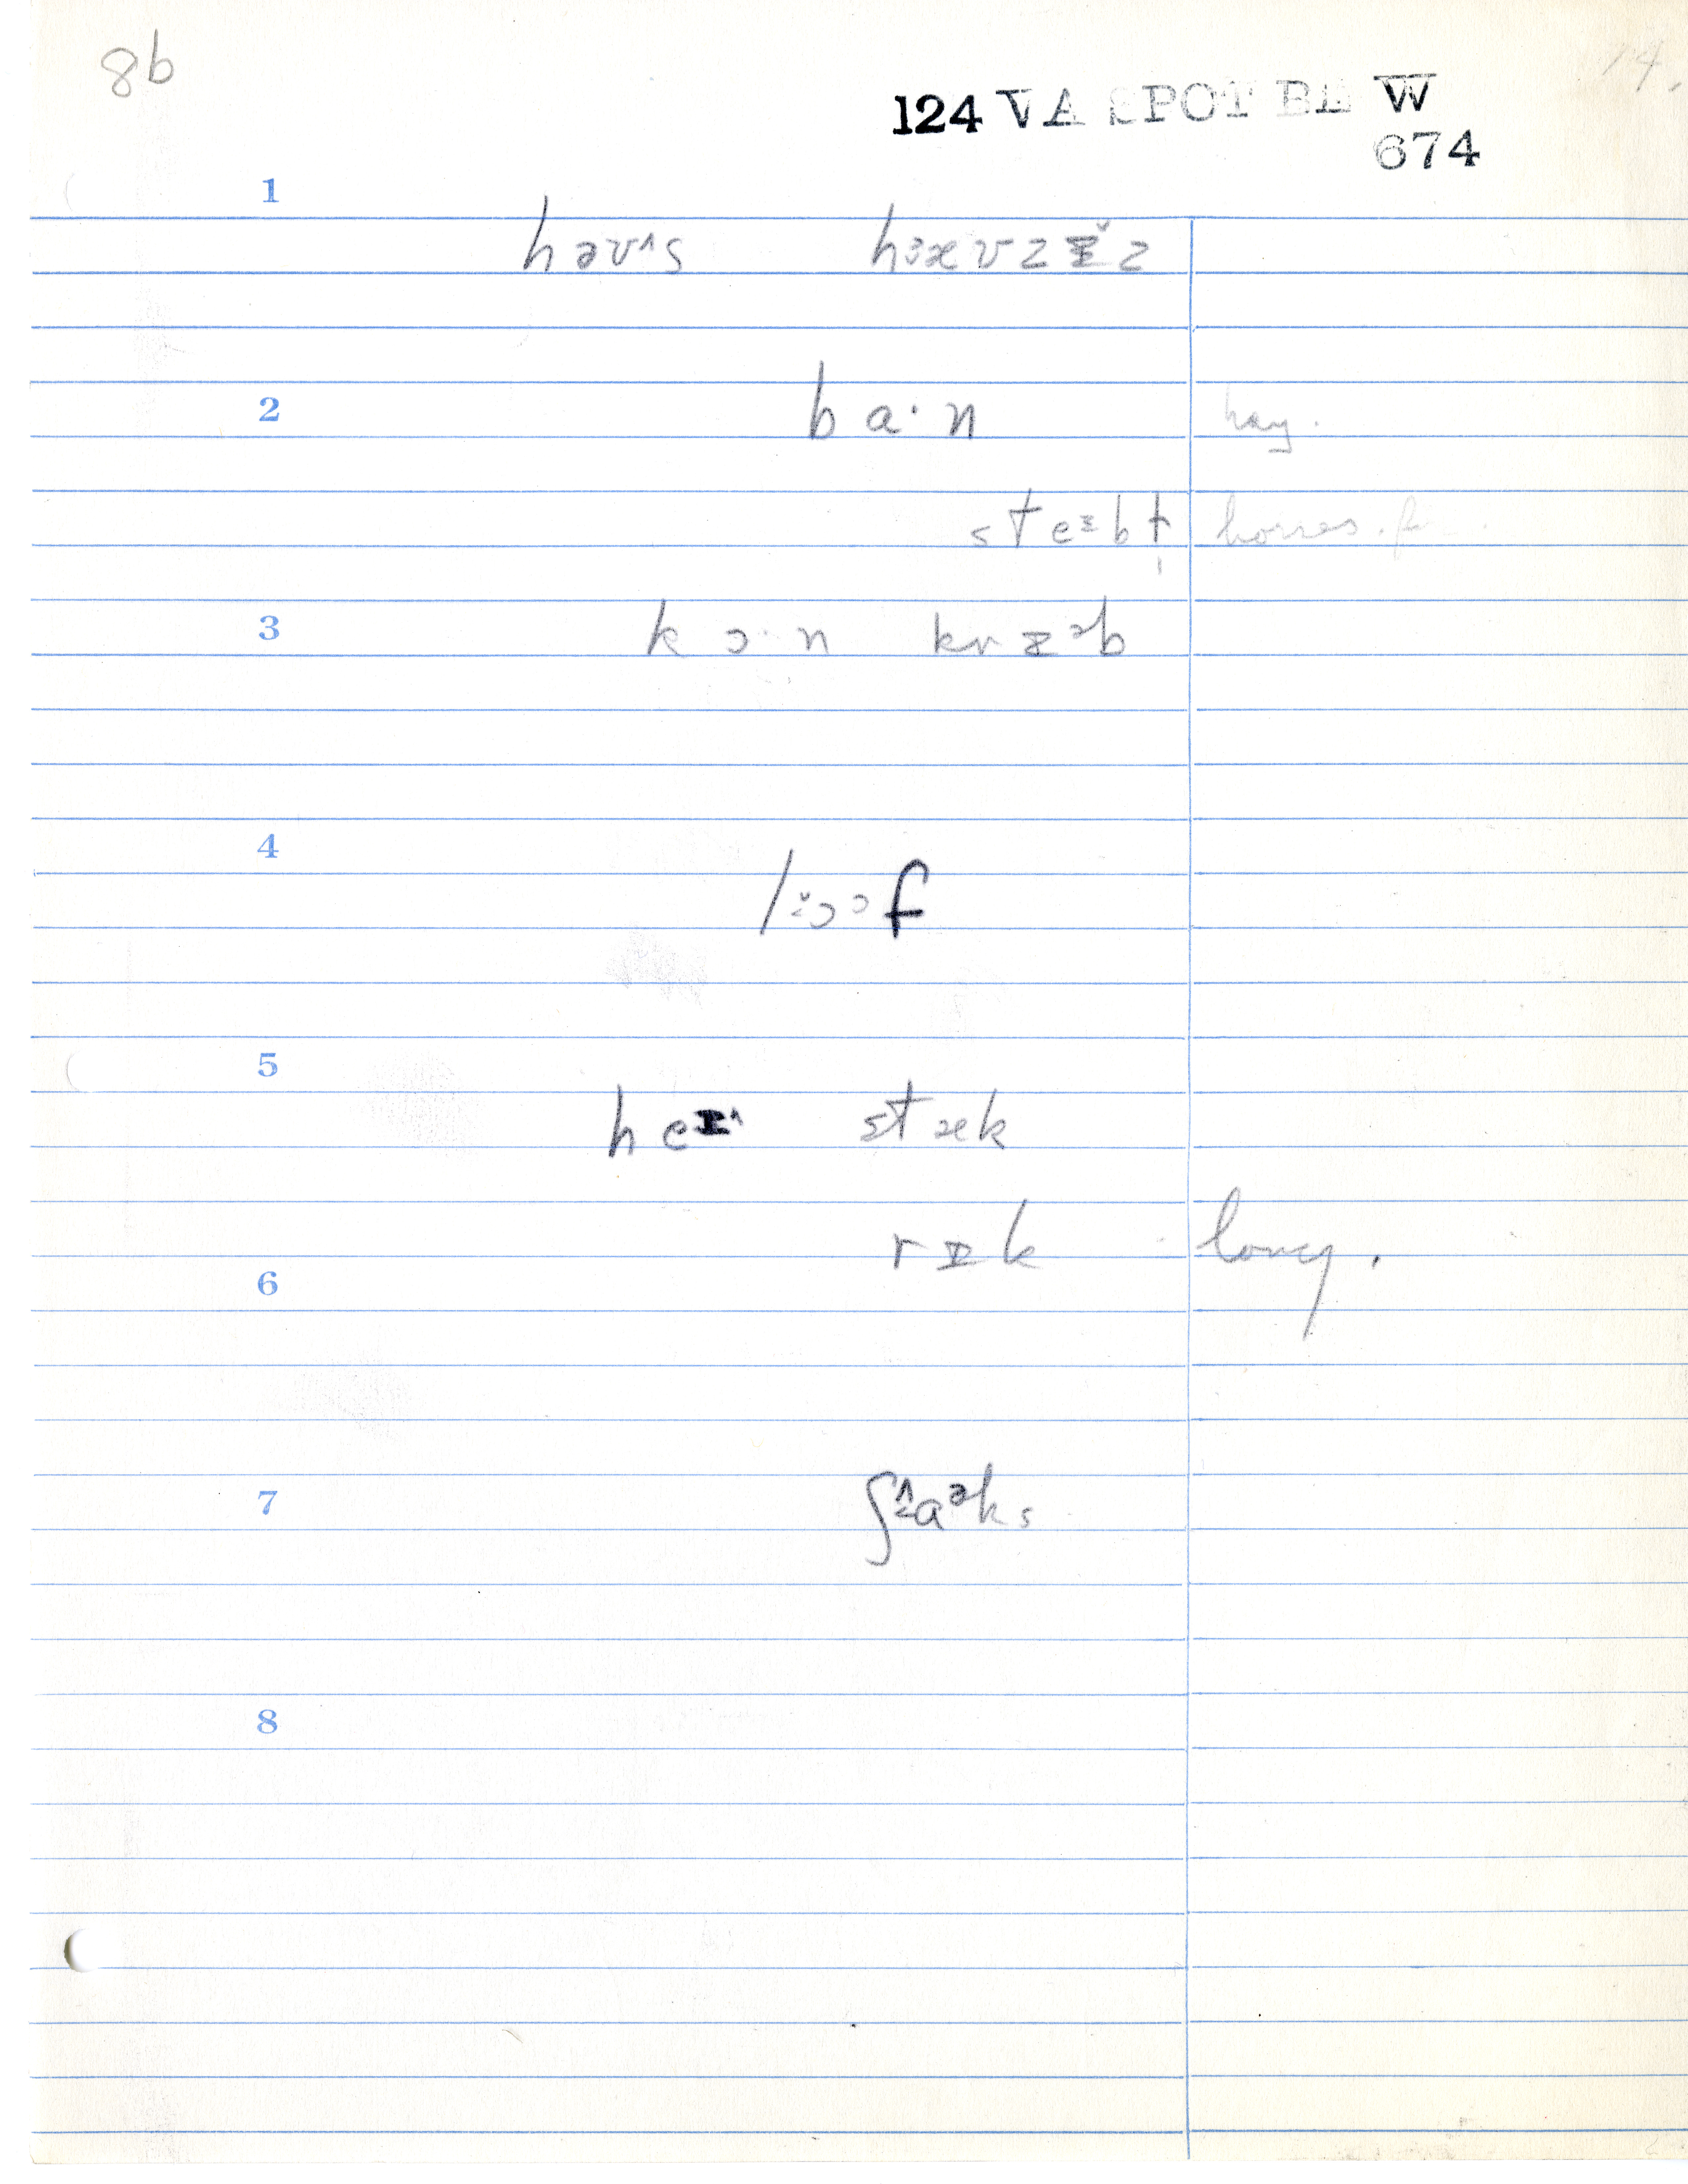 8b
14.
124 VA SPOT BL W
674
1
həʊ^s hæʊzɪ̌z
2 ba·n hay.
steɪbɫ̩ horses.
3 kɔ·n krɪᵊb
4
lɔᵓf
5
heɪ^ stæk
rɪk long.
6
7 ʃaᵊks
8